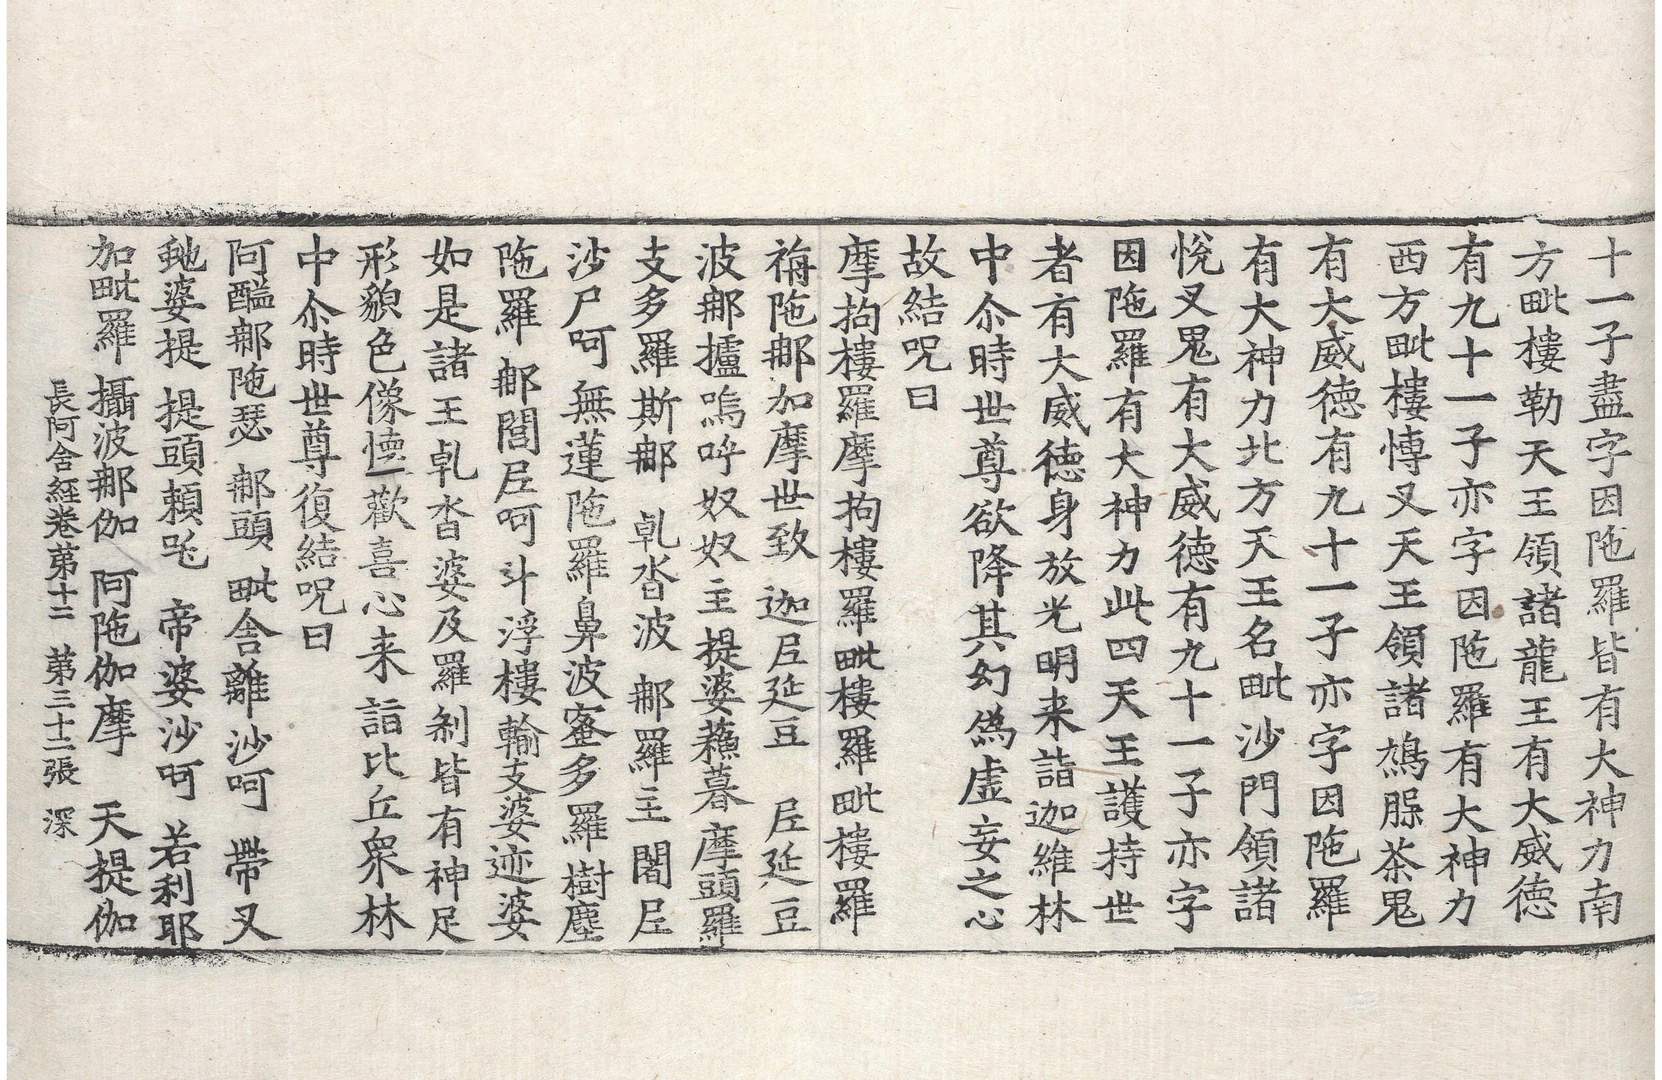 十一子盡字因陁羅皆有大神力南
方毗樓勒天王領諸龍王有大威德
有九十一子亦字因陁羅有大神力
西方毗樓愽叉天王領諸鳩茶鬼
有大威德有九十一子亦字因陁羅
有大神力北方天王名毗沙門領諸
悅叉鬼有大威德有九十一子亦字
因陁羅有大神力此四天王護持世
者有大威德身放光明来詣迦維林
中尒時世尊欲降其幻僞虛妄之心
故結呪曰
摩拘樓羅摩拘樓羅毗樓羅毗樓羅
陁那加摩世致 迦尼延豆 尼延豆
波那攎嗚呼奴奴主提婆蘓暮摩頭羅
支多羅斯那 乹沓波 那羅主 闍尼
沙尸呵無蓮陁羅鼻波蜜多羅樹塵
陁羅 那閭尼呵斗浮樓輸支婆迹婆
如是諸王乹沓婆及羅剎皆有神足
形貌色像懷歡喜心来詣比丘衆林
中尒時世尊復結呪曰
阿醯那陁瑟 那頭 毗舍離 沙呵 帶叉
虵婆提 提頭頼吒 帝婆沙呵 若利耶
加毗羅 攝波那伽 阿陁伽摩 天提伽
長阿含經卷第十二 第三十二張 深